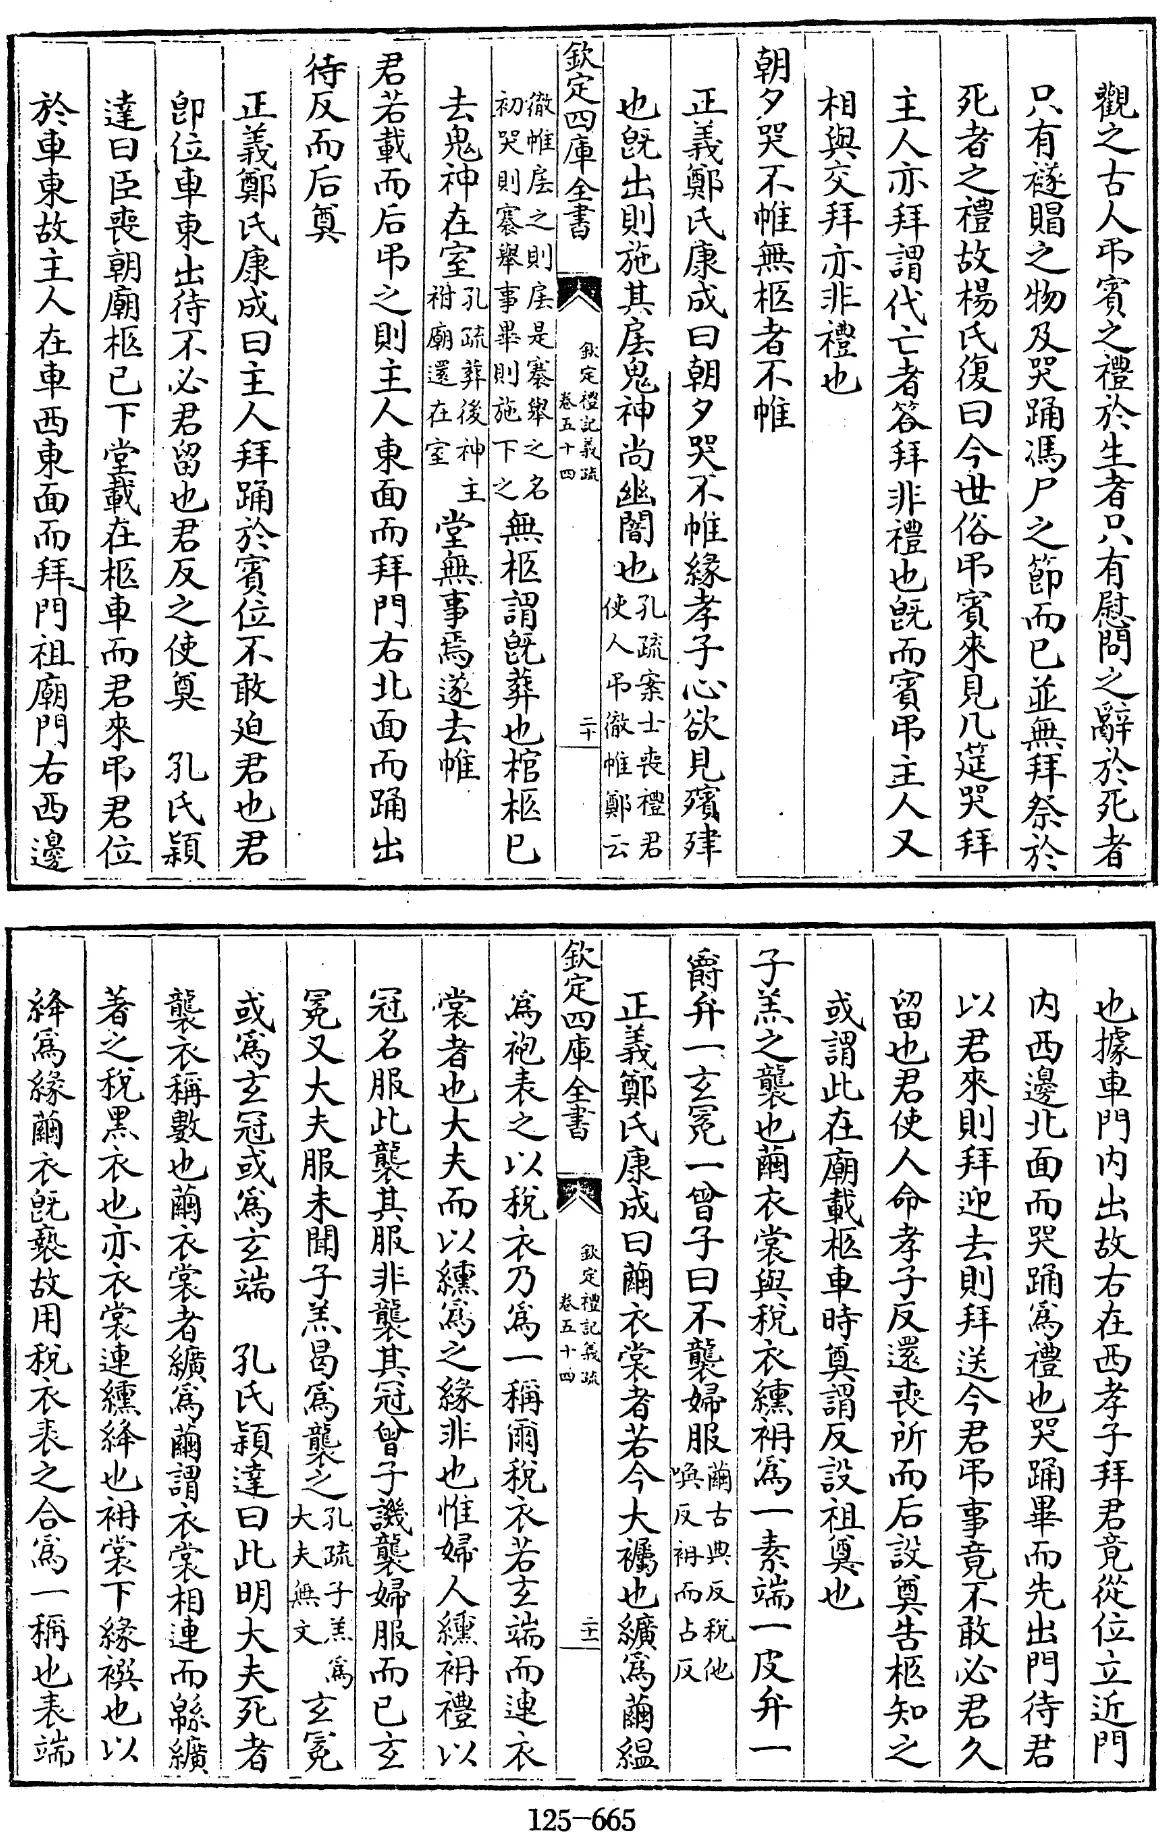 觀之古人弔賓之禮於生者只有慰問之辭於死者
只有襚賵之物及哭踊馮尸之節而已並無拜祭於
死者之禮故楊氏復曰今世俗弔賓來見几筵哭拜
主人亦拜謂代亡者答拜非禮也既而賓弔主人又
相與交拜亦非禮也
朝夕哭不帷無柩者不帷
正義鄭氏康成曰朝夕哭不帷緣孝子心欲見殯肂
也既出則施其扆鬼神尚幽闇也孔疏案士喪禮君使人弔徹帷鄭云
欽定四庫全書 欽定禮記義疏 卷五十四 二十
徹帷扆之則扆是褰舉之名初哭則褰舉事畢則施下之無柩謂既葬也棺柩已
去鬼神在室孔疏葬後神主祔廟還在室堂無事焉遂去帷
君若載而后弔之則主人東面而拜門右北面而踊出
待反而后奠
正義鄭氏康成曰主人拜踊於賓位不敢迫君也君
卽位車東出待不必君留也君反之使奠 孔氏穎
達曰臣喪朝廟柩已下堂載在柩車而君來弔君位
於車東故主人在車西東面而拜門祖廟門右西邊
也據車門内出故右在西孝子拜君竟從位立近門
内西邊北面而哭踊爲禮也哭踊畢而先出門待君
以君來則拜迎去則拜送今君弔事竟不敢必君久
留也君使人命孝子反還喪所而后設奠告柩知之
或謂此在廟載柩車時奠謂反設祖奠也
子羔之襲也繭衣裳與稅衣纁袡爲一素端一皮弁一
爵弁一玄冕一曾子曰不襲婦服繭古典反稅他喚反袡而占反
正義鄭氏康成曰繭衣裳者若今大襡也纊爲繭緼
欽定四庫全書 欽定禮記義疏 卷五十四 二十一
爲袍表之以稅衣乃爲一稱爾稅衣若玄端而連衣
裳者也大夫而以纁爲之緣非也惟婦人纁袡禮以
冠名服此襲其服非襲其冠曾子譏襲婦服而已玄
冕又大夫服未聞子羔曷爲襲之孔疏子羔爲大夫無文玄冕
或爲玄冠或爲玄端 孔氏穎達曰此明大夫死者
襲衣稱數也繭衣裳者纊爲繭謂衣裳相連而緜纊
著之稅黑衣也亦衣裳連纁絳也袡裳下緣襈也以
絳爲緣繭衣旣褻故用稅衣表之合爲一稱也表端
125-665